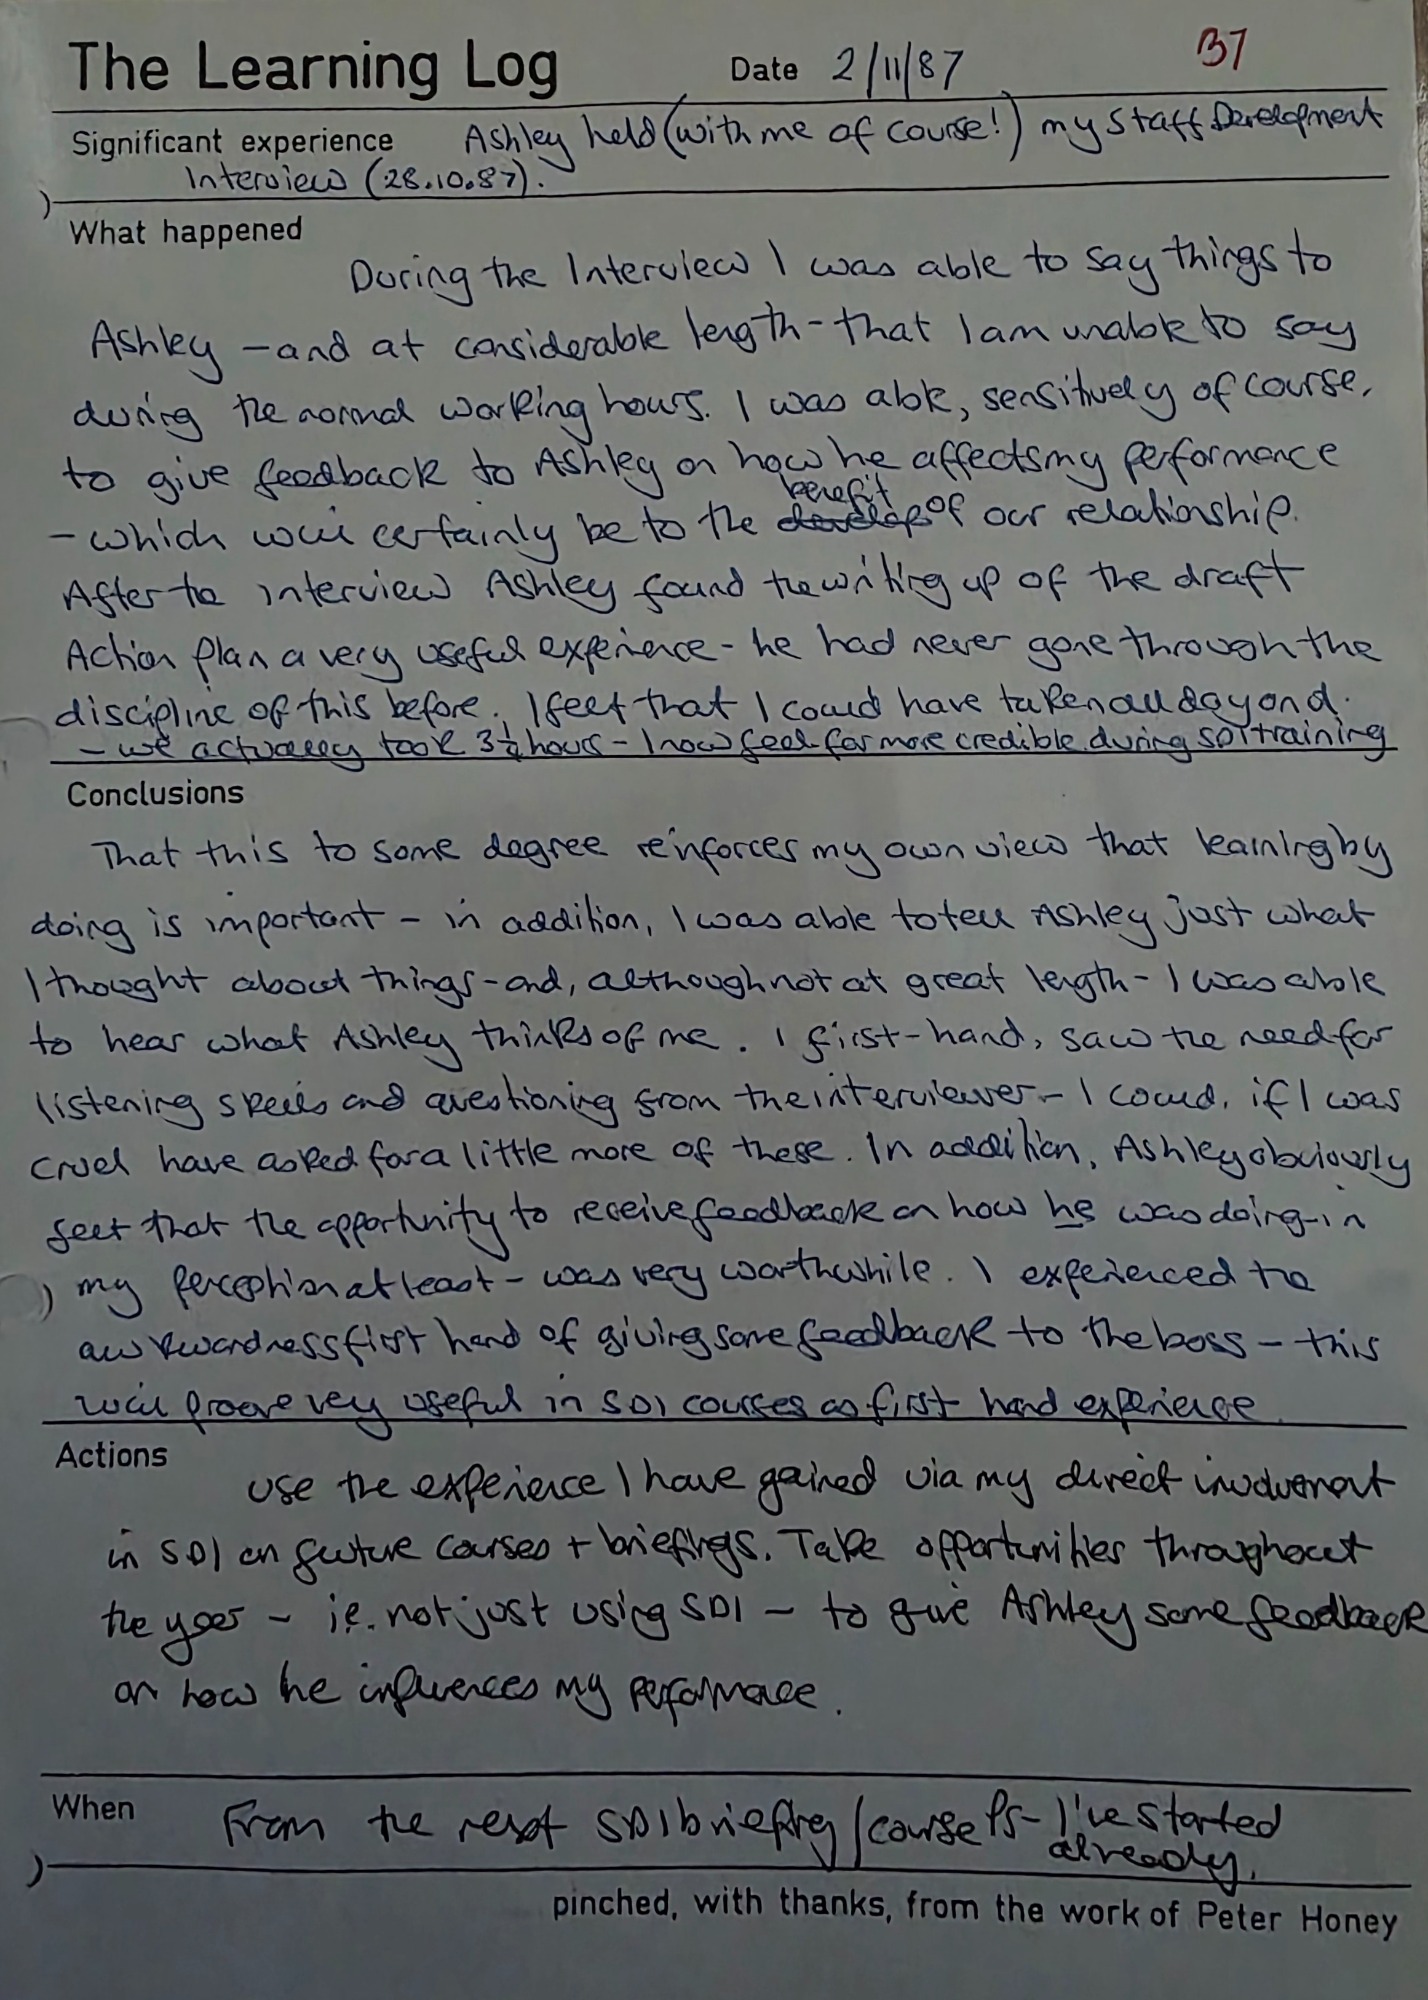 The Learning Log Date 2/11/87 B7
Significant experience Ashley held (with me of course!) my Staff Development
Interview (28.10.87).
What happened
During the Interview I was able to say things to
Ashley - and at considerable length - that I am unable to say
during the normal working hours. I was able, sensitively of course,
to give feedback to Ashley on how he affects my performance
benefit
- which will certainly be to the develop of our relationship.
After the interview Ashley found the writing up of the draft
Action Plan a very useful experience - he had never gone through the
discipline of this before. I feel that I could have taken all day and
- we actually took 3½ hours - I now feel far more credible during SDI training
Conclusions
That this to some degree reinforces my own view that learning by
doing is important - in addition, I was able to tell Ashley just what
I thought about things - and, although not at great length - I was able
to hear what Ashley thinks of me. I first-hand, saw the need for
listening skills and questioning from the interviewer - I could, if I was
cruel have asked for a little more of these. In addition, Ashley obviously
feel that the opportunity to receive feedback on how he was doing - in
my perception at least - was very worthwhile. I experienced the
awkwardness first hand of giving some feedback to the boss - this
will proove very useful in SDI courses as first hand experience.
Actions
Use the experience I have gained via my direct involvement
in SDI on future courses + briefings. Take opportunities throughout
the year - i.e. not just using SDI - to give Ashley some feedback
on how he influences my performance.
When From the next SDI briefing/course Ps - I've started
already.
pinched, with thanks, from the work of Peter Honey